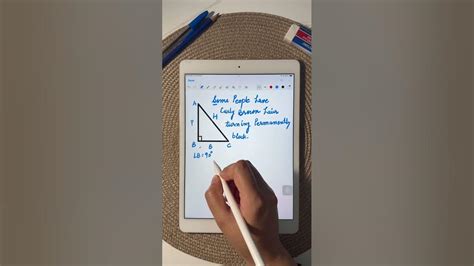 Some People have
Curly Brown Hair
turning Permanently
black.
A
P
H
B
B
C
∟B = 90°